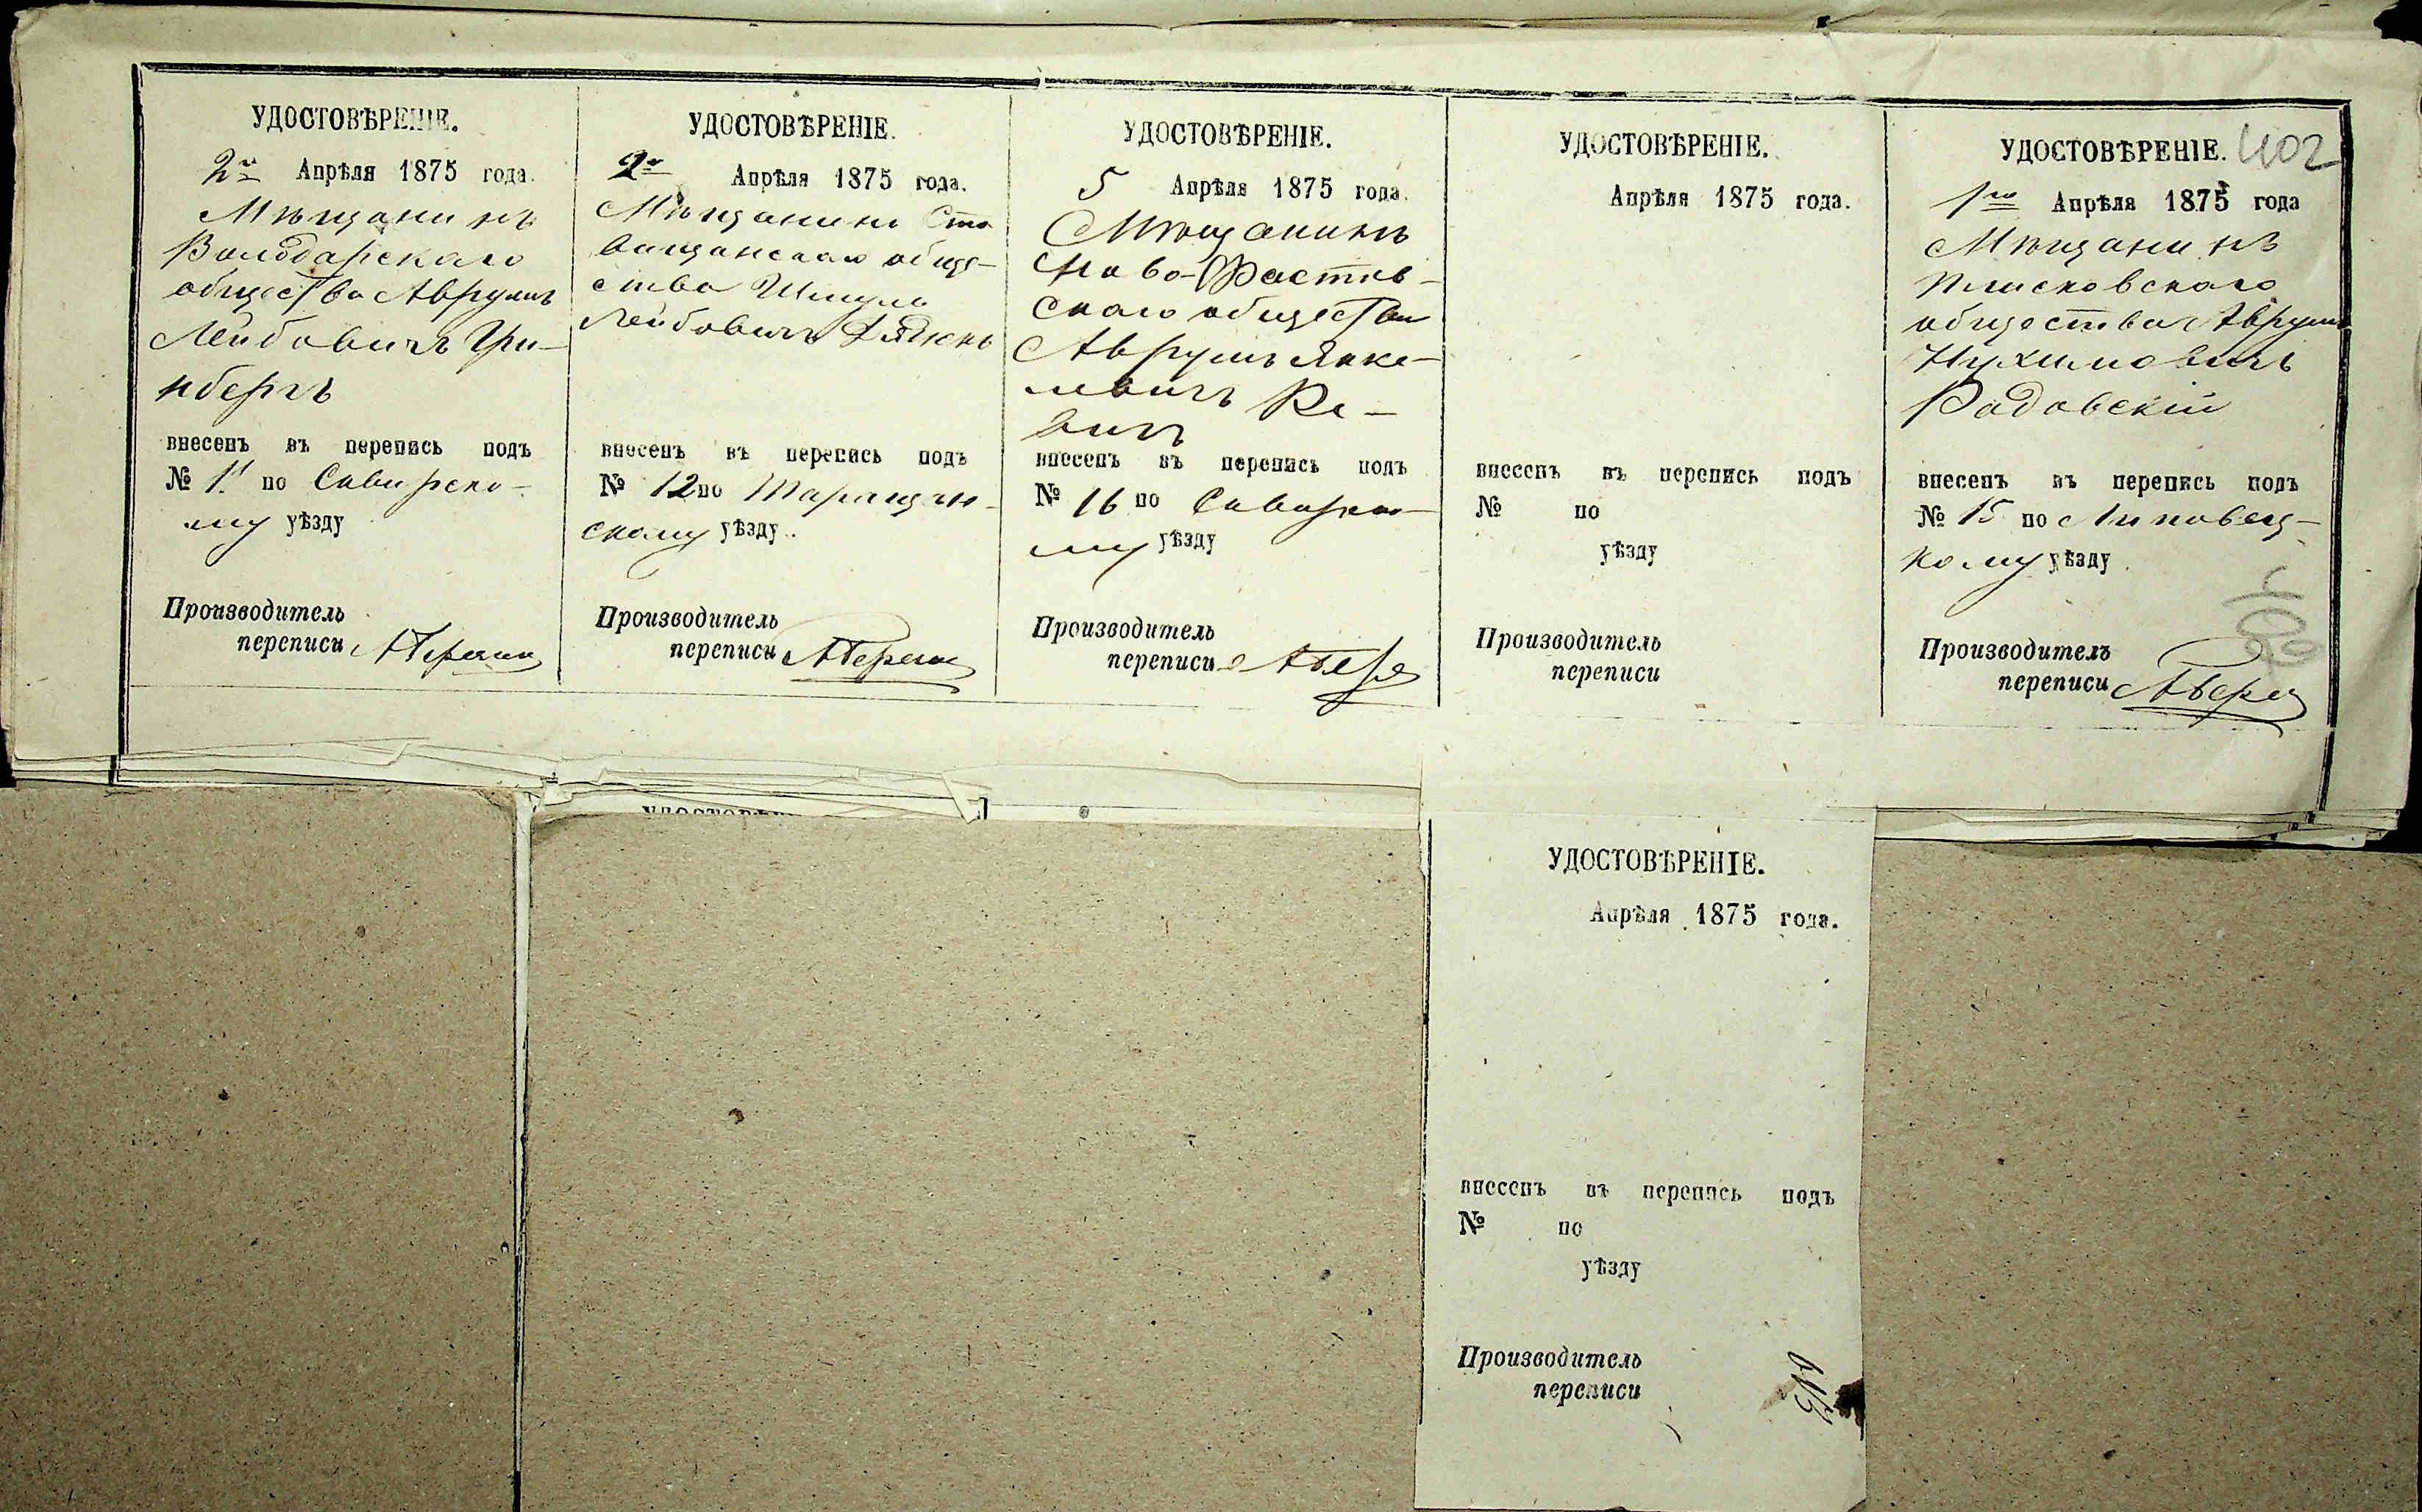 УДОСТОВѢРЕНІЕ.
2го Апрѣля 1875 года.
Мѣщанинъ
Володарскаго
общества Аврумъ
Лейбовичъ Гри-
нбергъ
внесенъ въ перепись подъ
№ 11 по Сквирско-
му уѣзду
Производитель
переписи
УДОСТОВѢРЕНІЕ.
2го Апрѣля 1875 года.
Мѣщанинъ Ста
вищанскаго обще-
ства Шмуль
Лейбовичъ
внесенъ въ перепись подъ
№ 12 по Таращан-
скому уѣзду.
Производитель
переписи
УДОСТОВѢРЕНІЕ.
5 Апрѣля 1875 года.
Мѣщанинъ
Ново-Фастов-
скаго общества
Аврумъ Янке-
левичъ Ре-
вичъ
внесенъ въ перепись подъ
№ 16 по Сквирско-
му уѣзду
Производитель
переписи
УДОСТОВѢРЕНІЕ.
Апрѣля 1875 года.
внесенъ въ перепись подъ
№ по
уѣзду
Производитель
переписи
УДОСТОВѢРЕНІЕ. 402
1го Апрѣля 1875 года
Мѣщанинъ
Плисковскаго
общества Аврумъ
Нухимовичъ
Радовскій
внесенъ въ перепись подъ
№ 15 по Липовец-
кому уѣзду
Производитель
переписи
УДОСТОВѢРЕНІЕ.
Апрѣля 1875 года.
внесенъ въ перепись подъ
№ по
уѣзду
Производитель
переписи